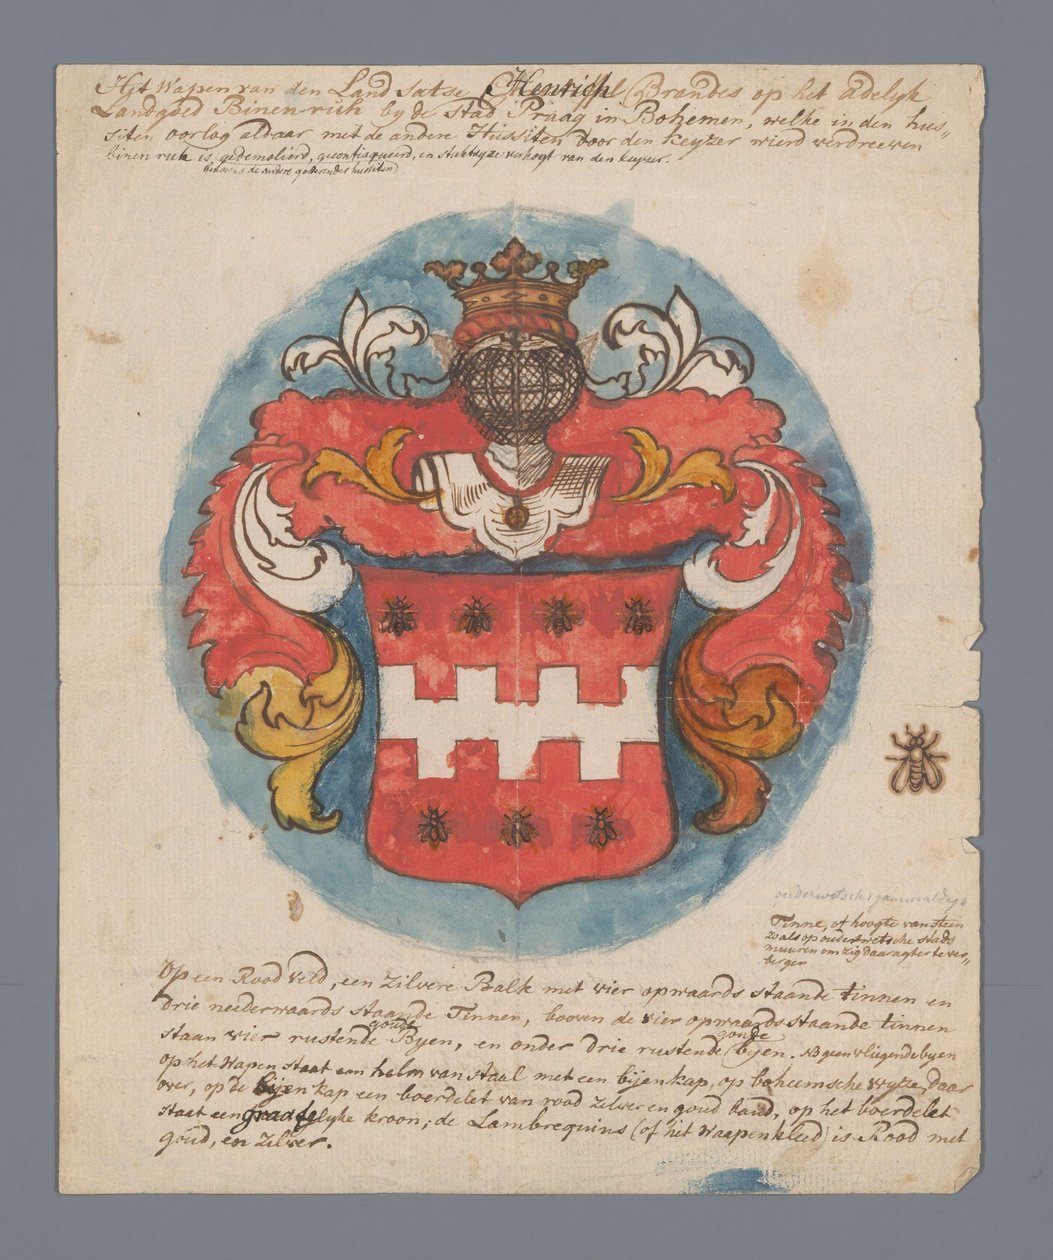 Het Wapen van den Land Satse Henrich Brandes op het adelyk
Landgoed Binenruk by de Stad Praag in Bohemen, welke in den hus„
siten oorlog aldaar met de andere Hussiten door den keyzer wierd verdreeven
binenruk is gedemolierd, geconfisqueerd, en verkogt van den keyser.
de andere hussiten)
ouderwetsch:
Tinne, of hoogte van steen
zoals op ouderwetsche stads
muuren om zig daaragter te ver„
bergen
Op een Rood veld, een Zilvere Balk met vier opwaards staande tinnen en
drie nederwaards staande Tinnen, booven de vier opwaards staande tinnen
staan vier rustende goude Byen, en onder drie rustende goude byen. NB geen vliegende byen
op het Wapen staat een helm van Staal met een bijenkap, op boheemsche wyze, daar
over, op de bijen kap een boerdelet van rood zilver en goud band, op het boerdelet
staat een graaflyke kroon; de Lambrequins (of het Waapenkleed) is Rood met
goud, en zilver.